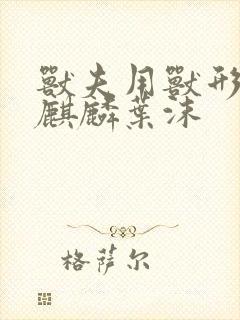 獸夫用獸形
麒麟葉沫
格萨尔